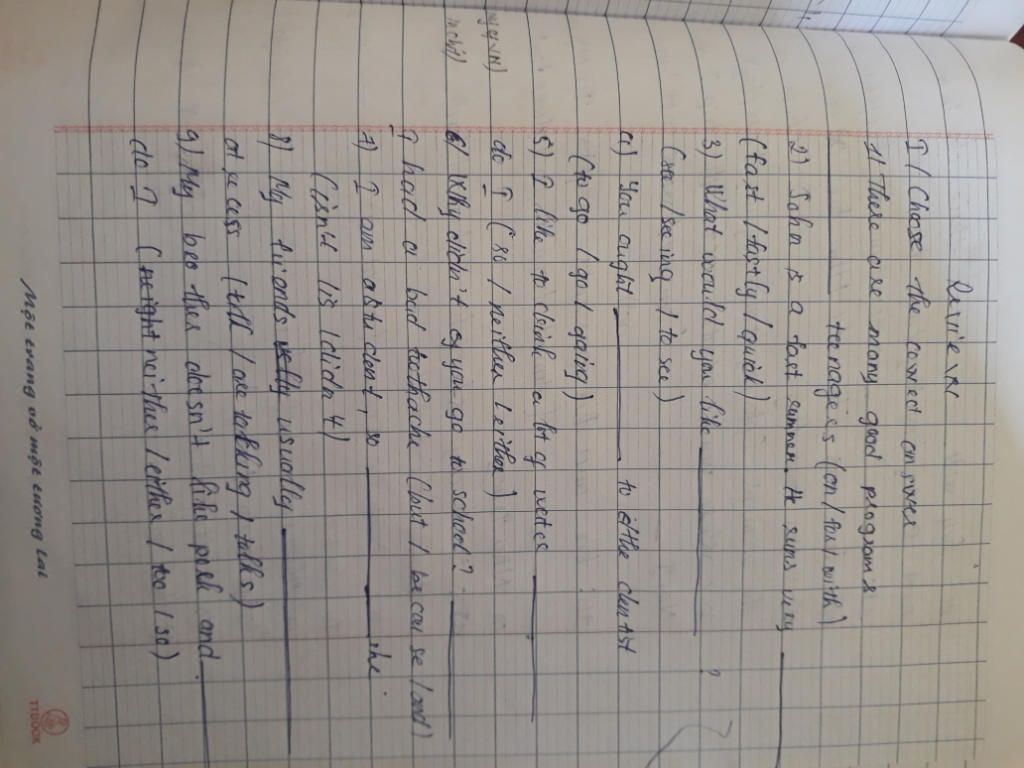 Review
I/ Choose the correct answer
1) There are many good programs
teenages (on / for / with)
2) John is a fast summer. He sums very
(fast / fastly / quick)
3) What would you like ?
(see / seeing / to see)
4) You ought to the dentist
(to go / go / going)
5) I like to drink a lot of water
do I (so / neither / either)
6) Why didn't you go to school?
I had a bad toothache (but / because / and)
7) I am a student, so she.
(isn't / is / didn't)
8) My friends usually
at recess (tell / are talking / talks)
9) My brother doesn't like pork and
do I (neither / either / too / so)
Một trang vở một tương lai
TTBOOK